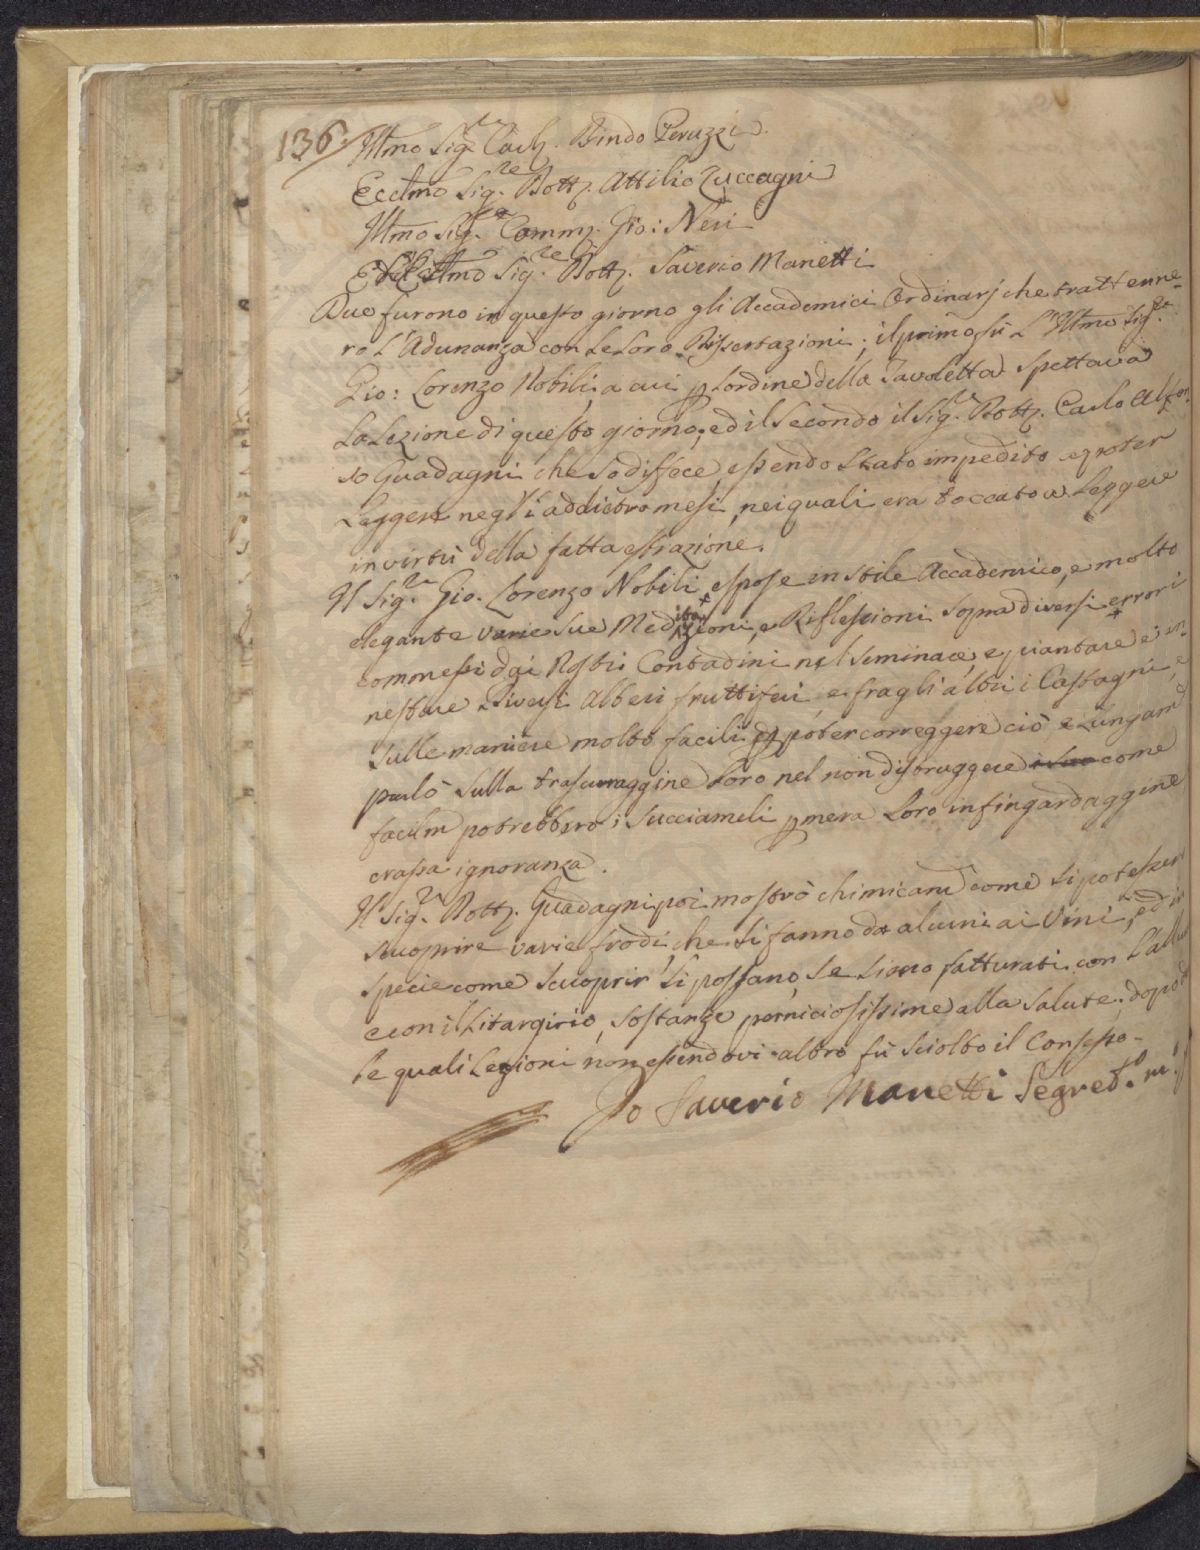 136. Illmo Sig.r Cav. Bindo Peruzzi
Eccelmo Sig.re Dott. Attilio Zuccagni
Illmo Sig.re Comm. Gio: Neri
Eccelmo Sig.re Dott. Saverio Manetti
Due furono in questo giorno gli Accademici Ordinarj che trattenne-
ro l'Adunanza con le loro Dissertazioni; il primo fù l'Illmo Sig.re
Gio: Lorenzo Nobili, a cui p l'ordine della Tavoletta spettava
la Lezione di questo giorno; ed il secondo il Sig.r Dott. Carlo Alfon-
so Guadagni che sodisfece, essendo stato impedito a poter
leggere negl'addietro mesi, nei quali era toccato a leggere
in virtù della fatta estrazione.
Il Sig.r Gio. Lorenzo Nobili espose in stile Accademico, e molto
elegante varie sue Meditazioni, e Riflessioni sopra diversi errori
commessi dai Nostri Contadini nel seminare, e piantare e in-
nestare diversi Alberi fruttiferi, e fragli altri i Castagni, e
sulle maniere molto facili p poter correggere ciò e lungam
parlò sulla trascuraggine loro nel non distruggere come
facilm potrebbero i Succiameli p mera loro infingardaggine
crassa ignoranza.
Il Sig.r Dott. Guadagni poi mostrò chimicam come si potesser
scuoprire varie frodi, che si fanno da alcuni ai Vini, ed in
specie come scuoprir si possano, se siano fatturati con l'allu
e con il Litargirio, sostanze perniciosissime alla salute; dopo
le quali Lezioni non essendovi altro fù sciolto il Consesso-
Io Saverio Manetti Segret.o